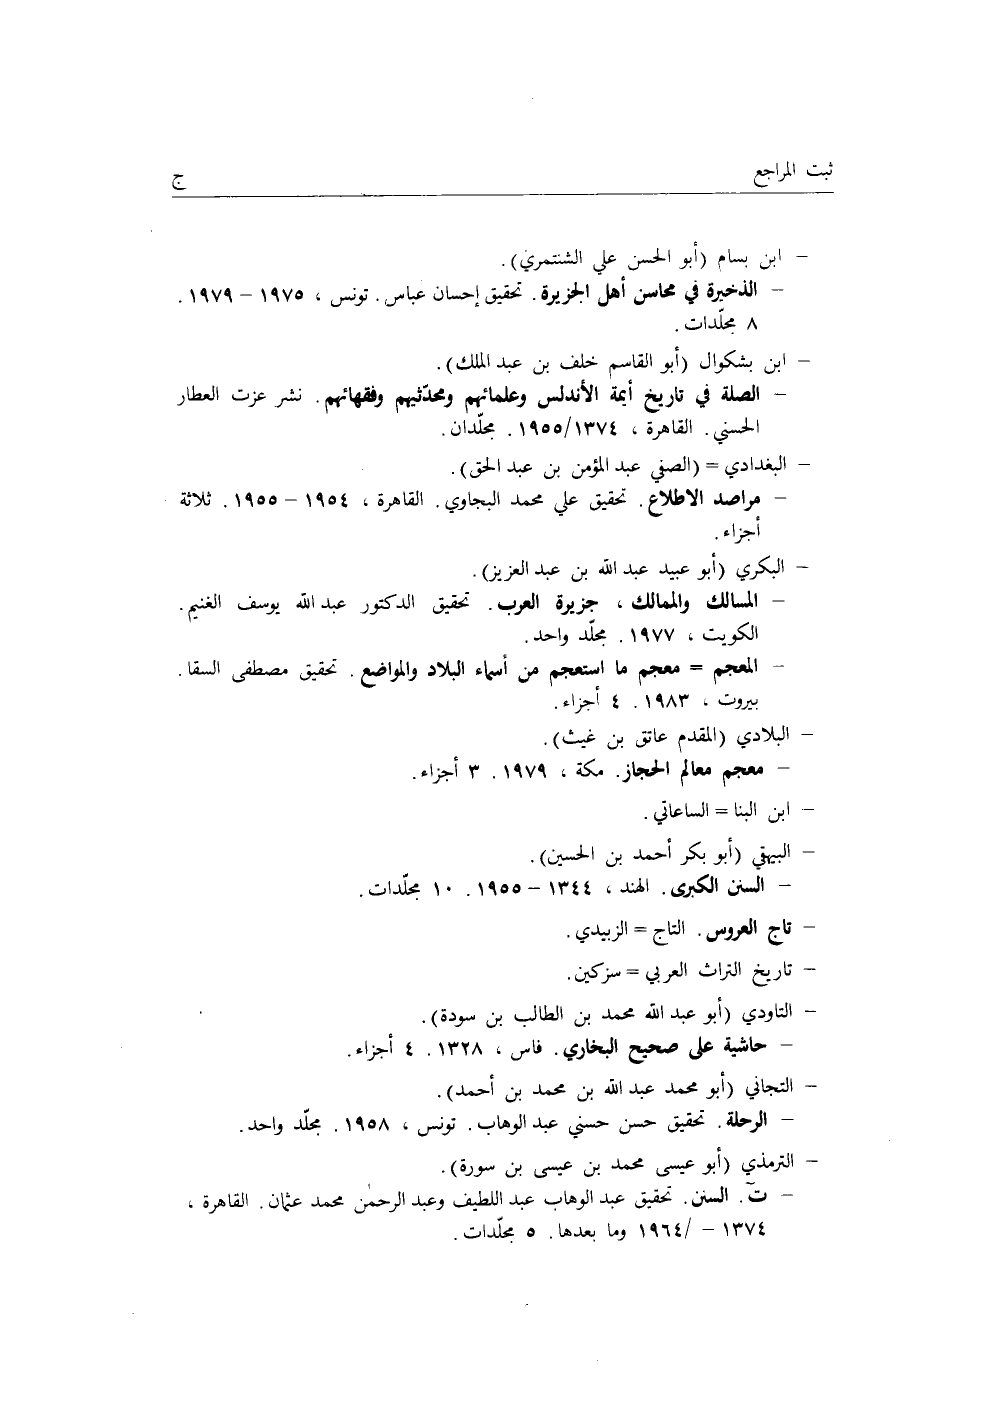 ثبت المراجع ج
– ابن بسام (أبو الحسن علي الشنتمري).
– الذخيرة في محاسن أهل الجزيرة. تحقيق إحسان عباس. تونس ، ١٩٧٥ – ١٩٧٩ .
٨ مجلّدات.
– ابن بشكوال (أبو القاسم خلف بن عبد الملك).
– الصلة في تاريخ أيمة الأندلس وعلمائهم ومحدّثيهم وفقهائهم. نشر عزت العطار
الحسني. القاهرة ، ١٩٥٥/١٣٧٤. مجلّدان.
– البغدادي = (الصفي عبد المؤمن بن عبد الحق).
– مراصد الاطلاع. تحقيق علي محمد البجاوي. القاهرة ، ١٩٥٤ – ١٩٥٥. ثلاثة
أجزاء.
– البكري (أبو عبيد عبد الله بن عبد العزيز).
– المسالك والممالك ، جزيرة العرب. تحقيق الدكتور عبد الله يوسف الغنيم.
الكويت ، ١٩٧٧. مجلّد واحد.
– المعجم = معجم ما استعجم من أسماء البلاد والمواضع. تحقيق مصطفى السقا.
بيروت ، ١٩٨٣. ٤ أجزاء.
– البلادي (المقدم عاتق بن غيث).
– معجم معالم الحجاز. مكة ، ١٩٧٩. ٣ أجزاء.
– ابن البنا = الساعاتي.
– البيهقي (أبو بكر أحمد بن الحسين).
– السنن الكبرى. الهند ، ١٣٤٤ – ١٩٥٥. ١٠ مجلّدات.
– تاج العروس. التاج = الزبيدي.
– تاريخ التراث العربي = سزكين.
– التاودي (أبو عبد الله محمد بن الطالب بن سودة).
– حاشية على صحيح البخاري. فاس ، ١٣٢٨. ٤ أجزاء.
– التجاني (أبو محمد عبد الله بن محمد بن أحمد).
– الرحلة. تحقيق حسن حسني عبد الوهاب. تونس ، ١٩٥٨. مجلّد واحد.
– الترمذي (أبو عيسى محمد بن عيسى بن سورة).
– ت. السنن. تحقيق عبد الوهاب عبد اللطيف وعبد الرحمٰن محمد عثمان. القاهرة ،
١٣٧٤ – /١٩٦٤ وما بعدها. ٥ مجلّدات.